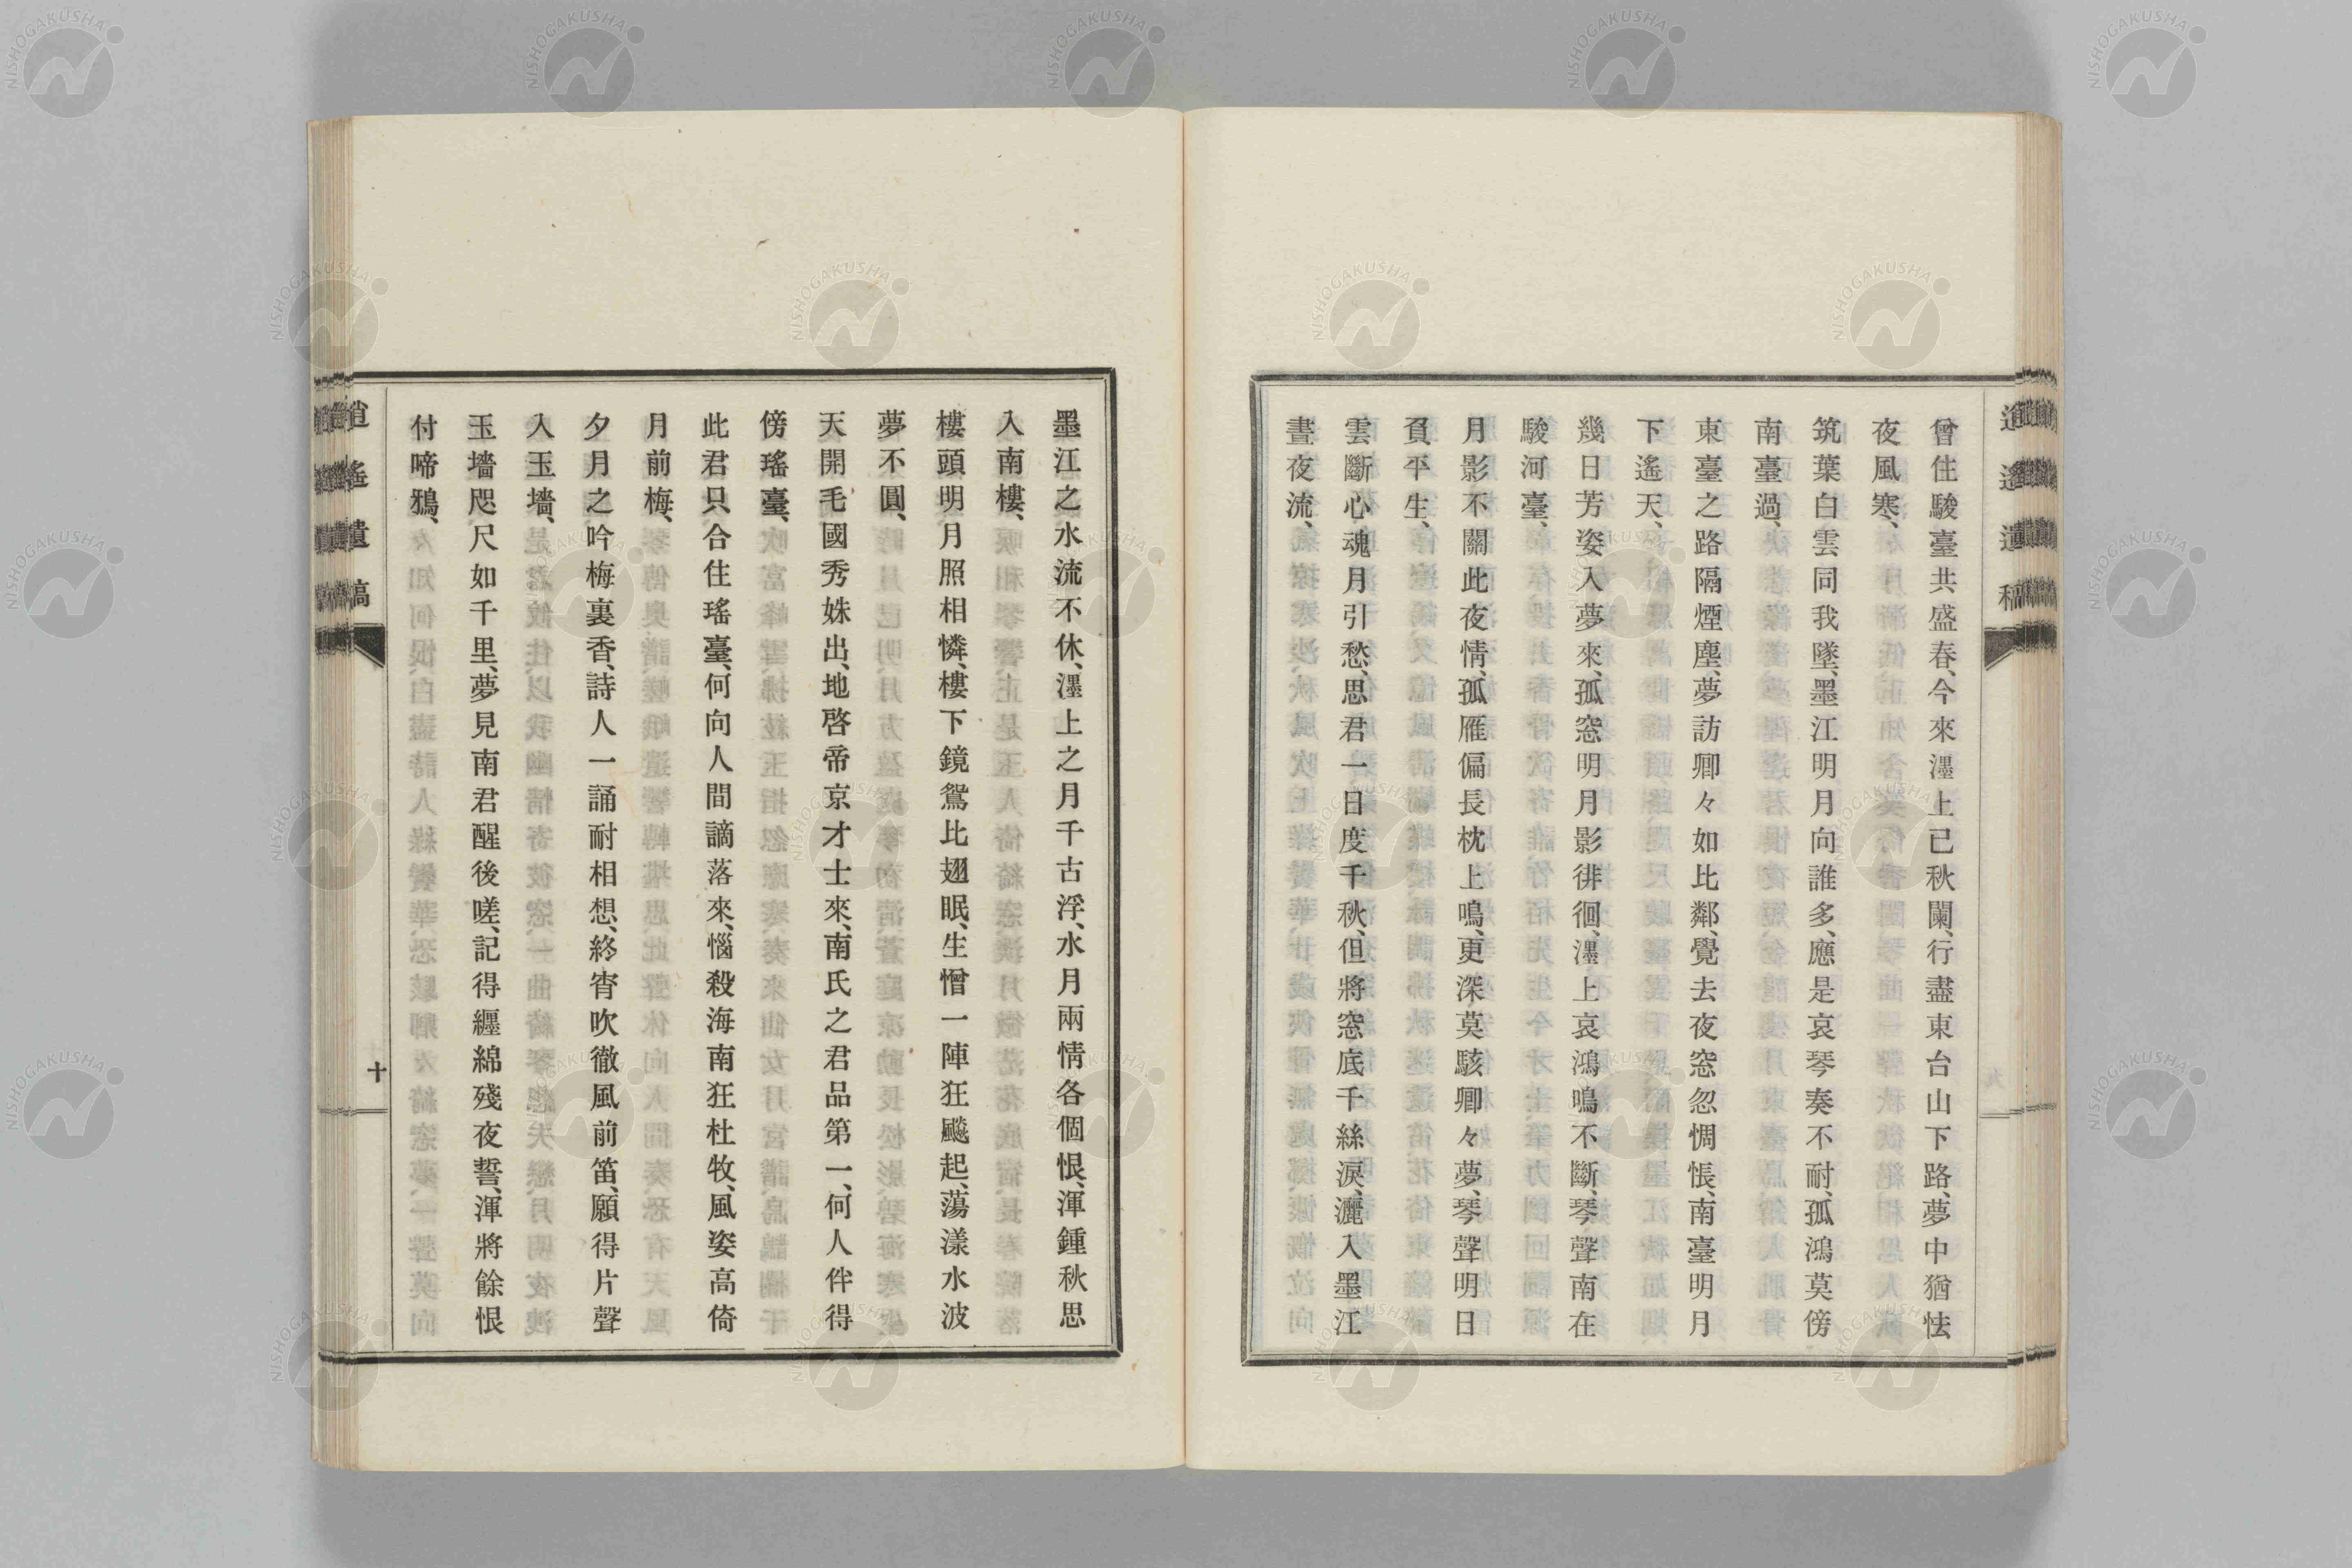 逍遙遺稿
曾住駿臺共盛春、今來濹上已秋闌、行盡東台山下路、夢中猶怯
夜風寒、
筑葉白雲同我墜、墨江明月向誰多、應是哀琴奏不耐、孤鴻莫傍
南臺過、
東臺之路隔煙塵、夢訪卿々如比鄰、覺去夜窓忽惆悵、南臺明月
下遙天、
幾日芳姿入夢來、孤窓明月影徘徊、濹上哀鴻鳴不斷、琴聲南在
駿河臺、
月影不關此夜情、孤雁偏長枕上鳴、更深莫駭卿々夢、琴聲明日
負平生、
雲斷心魂月引愁、思君一日度千秋、但將窓底千絲淚、灑入墨江
晝夜流、
墨江之水流不休、濹上之月千古浮、水月兩情各個恨、渾鍾秋思
入南樓、
樓頭明月照相憐、樓下鏡鴛比翅眠、生憎一陣狂飈起、蕩漾水波
夢不圓、
天開毛國秀姝出、地啓帝京才士來、南氏之君品第一、何人伴得
傍瑤臺、
此君只合住瑤臺、何向人間謫落來、惱殺海南狂杜牧、風姿高倚
月前梅、
夕月之吟梅裏香、詩人一誦耐相想、終宵吹徹風前笛、願得片聲
入玉墻、
玉墻咫尺如千里、夢見南君醒後嗟、記得纒綿殘夜誓、渾將餘恨
付啼鴉、
逍遙遺稿
十
NISHOGAKUSHA